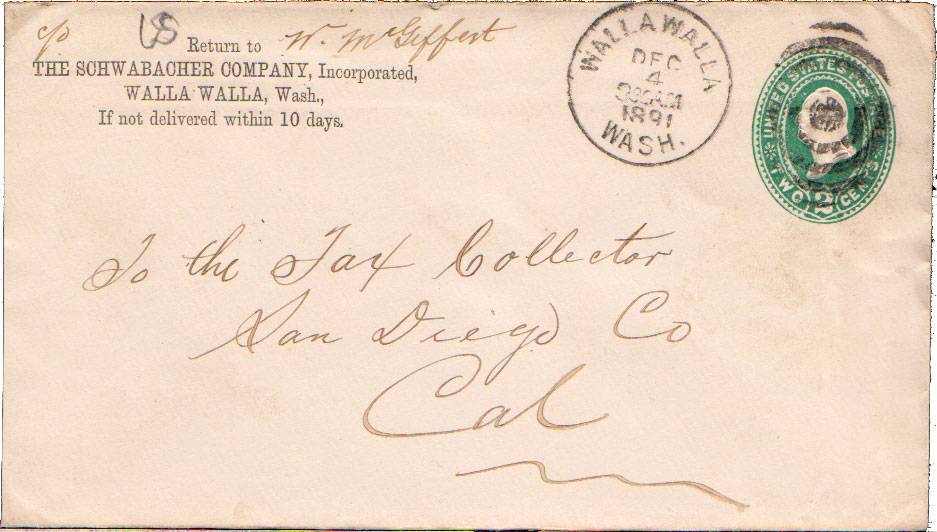 c/o US Return to W. McGeffert
THE SCHWABACHER COMPANY, Incorporated,
WALLA WALLA, Wash.,
If not delivered within 10 days.
WALLA WALLA
DEC
4
1891
WASH.
UNITED STATES
TWO 2 CENTS
To the Tax Collector
San Diego Co
Cal